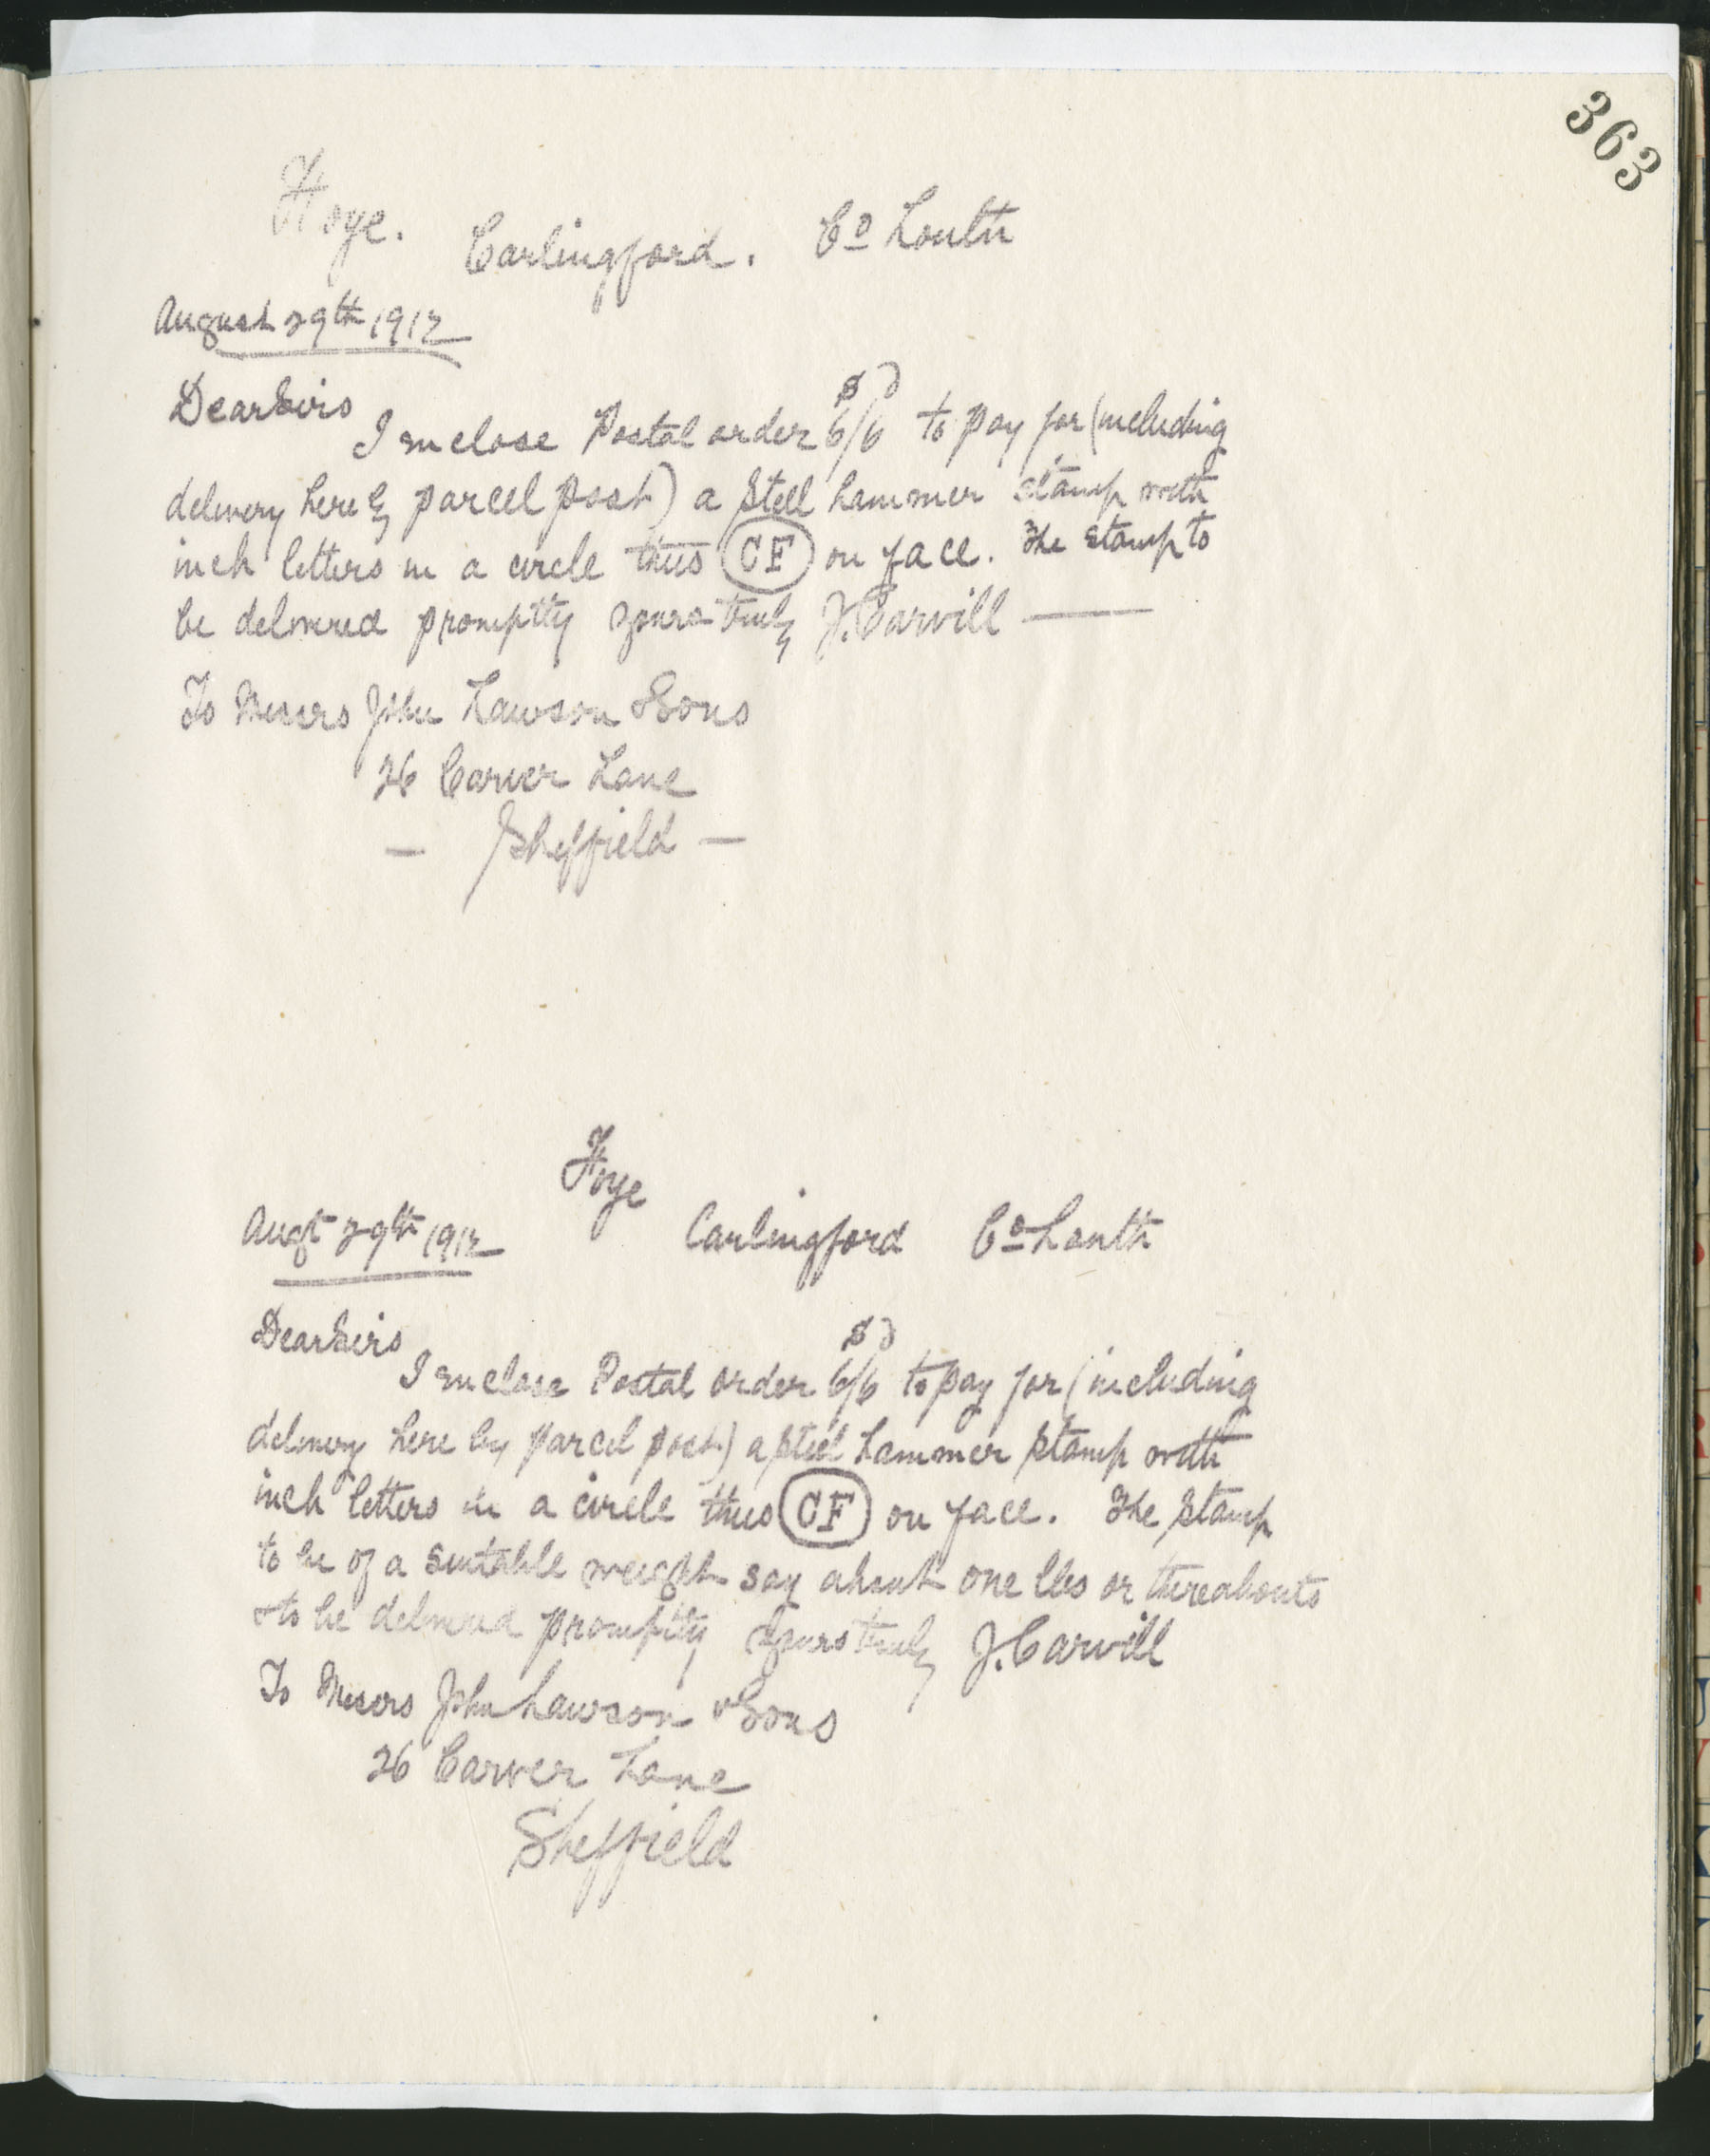 363
Foye.
Carlingford. Co Louth
August 29th 1912
Dear Sirs
I enclose Postal order 6s/6d to pay for (including
delivery here by parcel post) a steel hammer stamp with
inch letters in a circle thus CF on face. The stamp to
be delivered promptly yours truly J. Carvill
To Messrs John Lawson & Sons
26 Carver Lane
— Sheffield —
Foye
Augt 29th 1912 Carlingford Co Louth
Dear Sirs
I enclose Postal order 6s/6d to pay for (including
delivery here by parcel post) a steel hammer stamp with
inch letters in a circle thus CF on face. The stamp
to be of a suitable weight say about one lbs or thereabouts
& to be delivered promptly yours truly J. Carvill
To Messrs John Lawson & Sons
26 Carver Lane
Sheffield